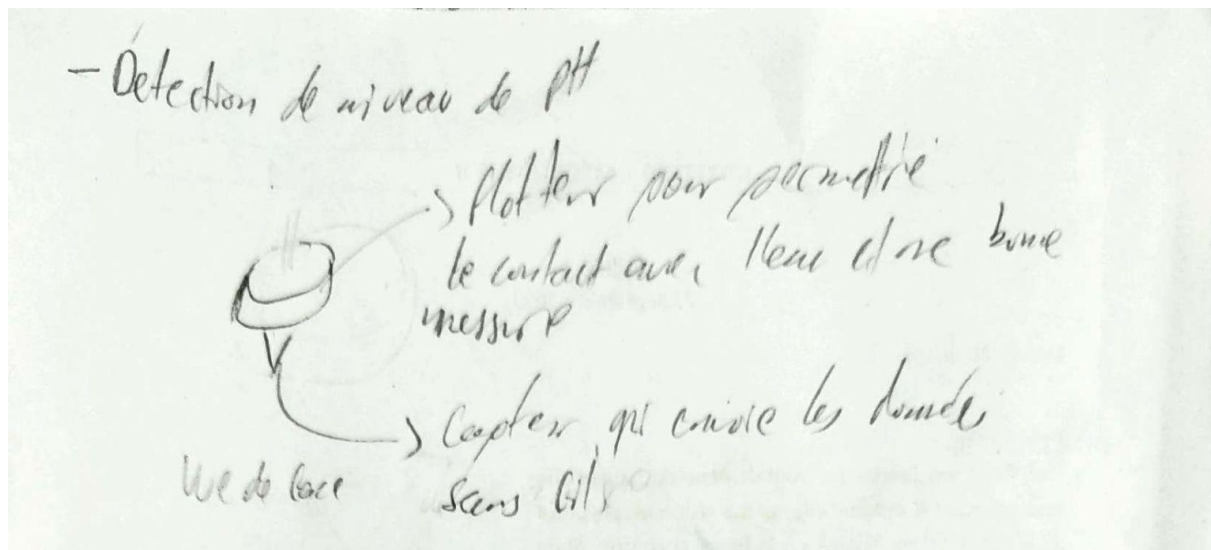 - Détection de niveau de pH
flotteur pour permettre
le contact avec l'eau et une bonne
messure
Capteur qui envoie les données
sans fils
Vue de face